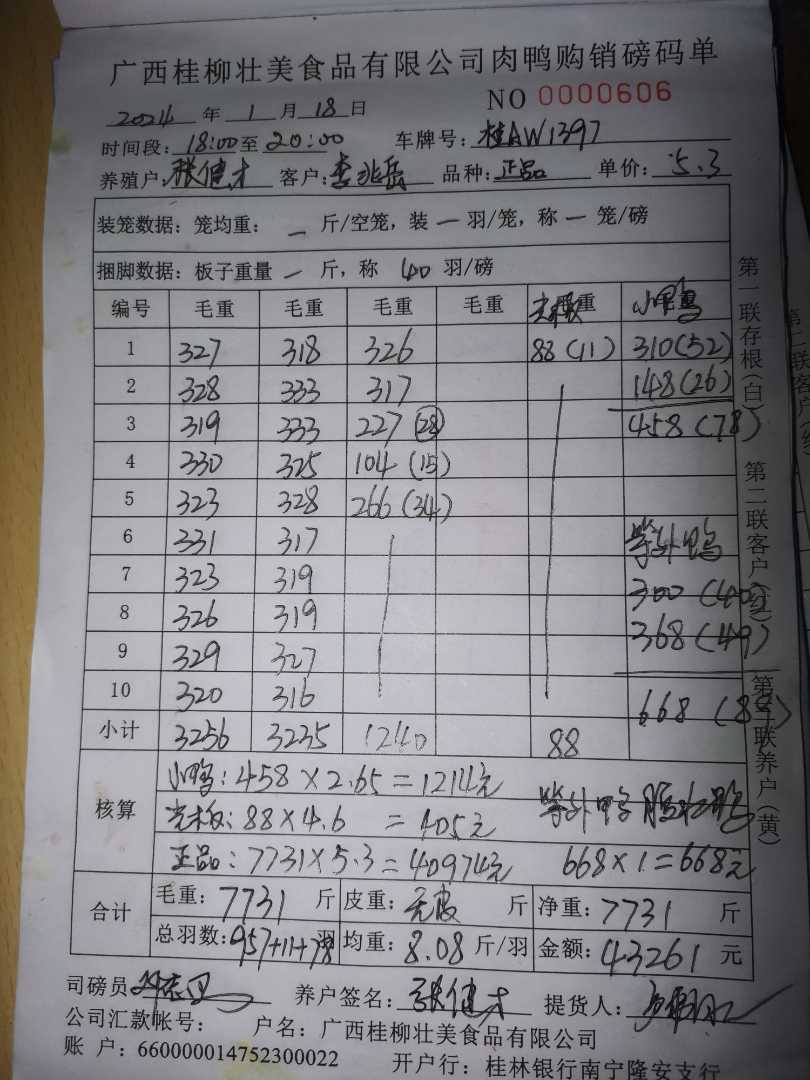 广西桂柳壮美食品有限公司肉鸭购销磅码单
NO 0000606
2024 年 1 月 18 日
时间段: 18:00至 20:00 车牌号: 桂AW1397
养殖户: 张健才 客户: 李兆岳 品种: 正品 单价: 5.3
装笼数据: 笼均重: 一 斤/空笼, 装 一 羽/笼, 称 一 笼/磅
捆脚数据: 板子重量 一 斤, 称 40 羽/磅
编号 毛重 毛重 毛重 毛重 小鸭
1 327 318 326 88 (11) 310(52)
2 328 333 317 148(26)
3 319 333 227 (28) 458 (78)
4 330 325 104 (15)
5 323 328 266 (34)
6 331 317 等外鸭
7 323 319 300 (40)
8 326 319 368 (49)
9 329 327
10 320 316 668 (89)
小计 3256 3235 1240 88
核算
小鸭: 458 × 2.65 = 1214元
光板: 88×4.6 = 405元 等外鸭
正品: 7731×5.3 = 40974元 668×1 = 668元
合计
毛重: 7731 斤 皮重: 无皮 斤 净重: 7731 斤
总羽数: 957+11+78 羽 均重: 8.08 斤/羽 金额: 43261 元
司磅员 养户签名: 张健才 提货人:
公司汇款帐号: 户名: 广西桂柳壮美食品有限公司
账 户: 660000014752300022 开户行: 桂林银行南宁隆安支行
第一联存根(白) 第二联客户(红) 第三联养户(黄)